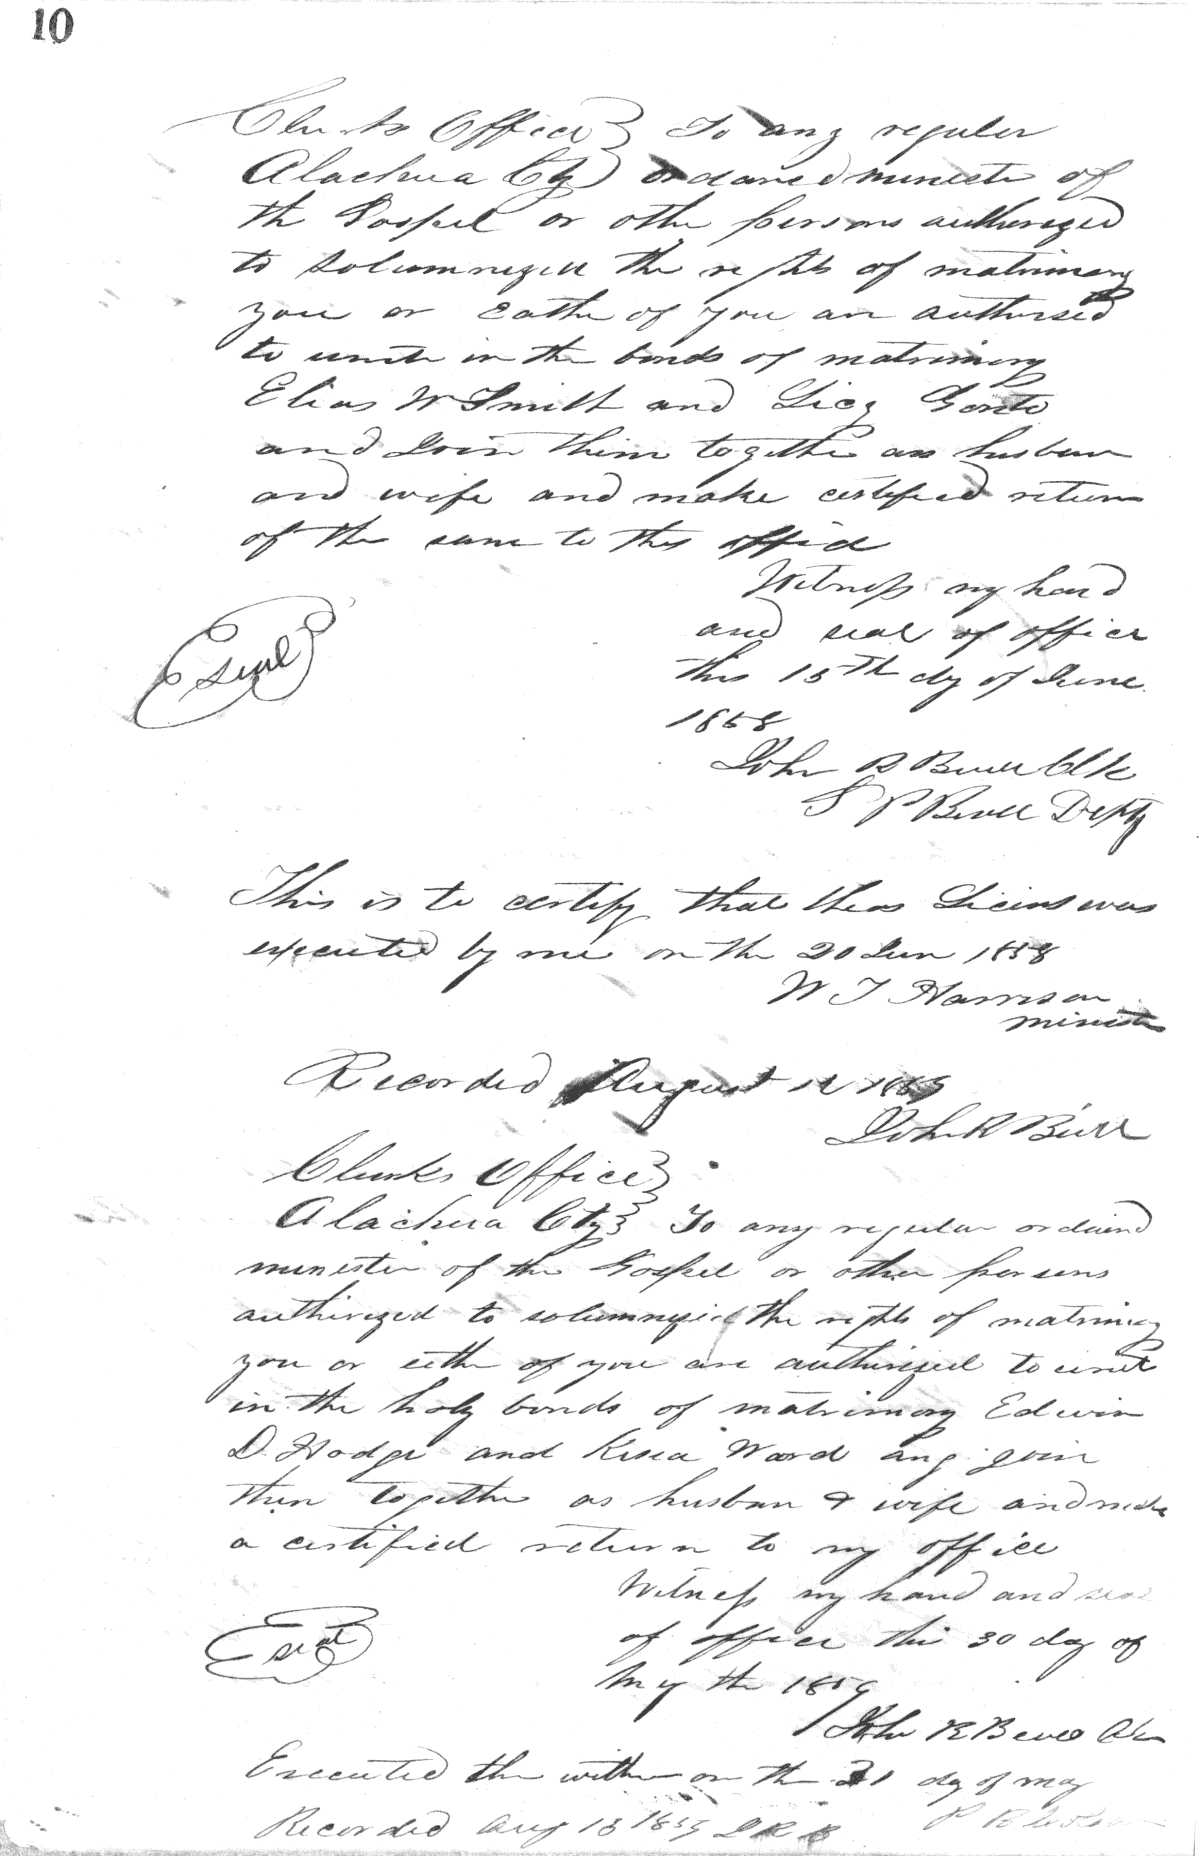 10
Clerks Office } To any reguler
Alachua Cty } ordaned minister of
the Gospel or othe persons autherized
to solumnize the rights of matrimony
you or eathe of you an authorised
to unite in the bonds of matrimony
Elias W Smith and
and Join them togethe as husban
and wife and make certified return
of the same to this office
Witness my hand
and seal of office
this 15th dy of June
1858
Seal
John R Bevill Clk
S P Bevill Depty
This is to certify that was
executed by me on the 20 Jun 1858
W J Harrison
minister
Recorded August 12 1859
John R Bevill
Clerks Office }
Alachua Cty } To any regular ordaind
minister of the Gospel or other persons
authirized to the rights of matrimony
you or eithe of you are authirized to unite
in the holy bonds of matrimony Edwin
D. Hodge and Kisea Ward and join
them togethe as husban & wife and make
a certified return to my office
Witness my hand and seal
of office this 30 day of
My the 1859
Seal
John R Bevill
Executed the within on the 31 day of may
Recorded Aug 13 1859 J R B